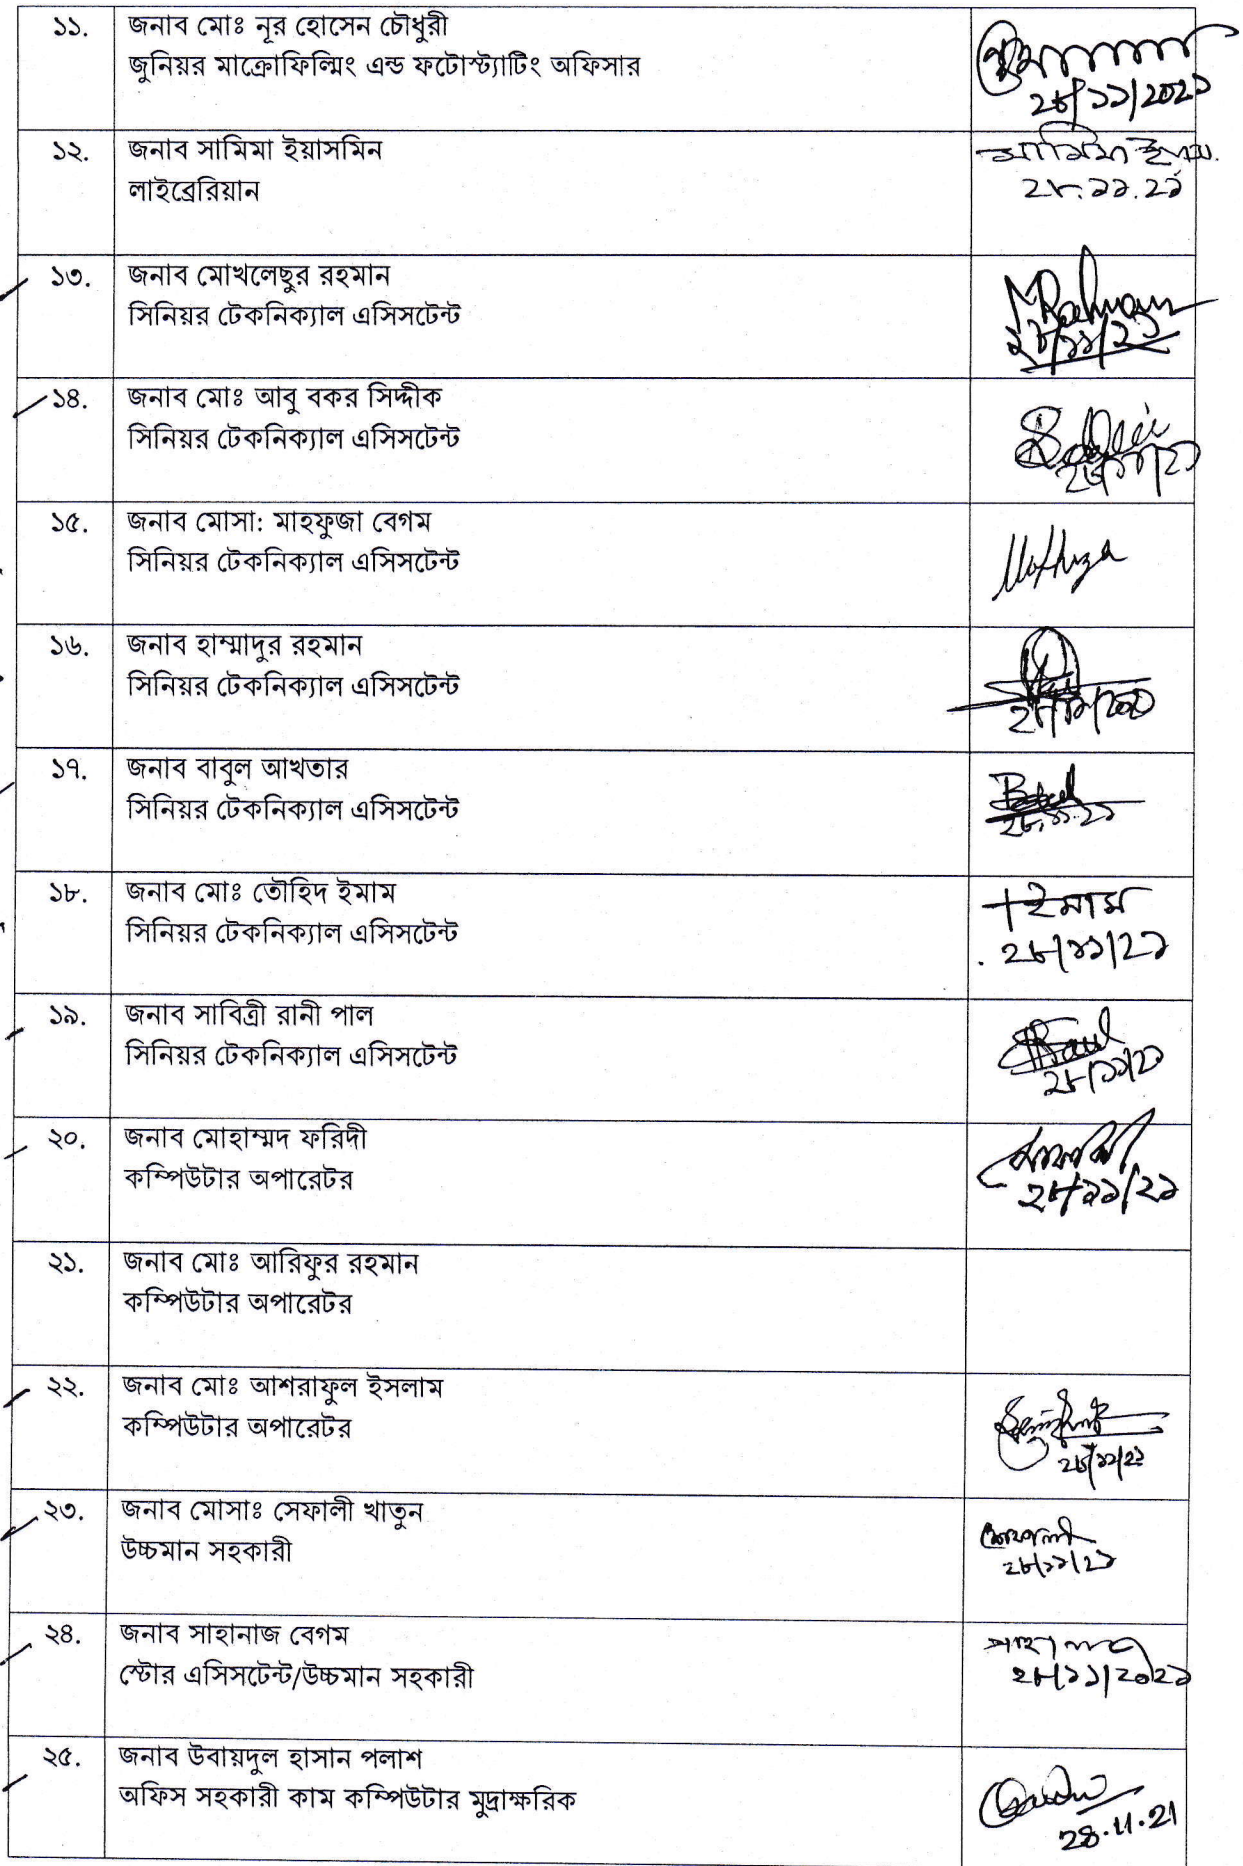 ১১.
জনাব মোঃ নূর হোসেন চৌধুরী
জুনিয়র মাক্রোফিল্মিং এন্ড ফটোস্ট্যাটিং অফিসার
২৮/১১/২০২১
১২.
জনাব সামিমা ইয়াসমিন
লাইব্রেরিয়ান
২৮.১১.২১
১৩.
জনাব মোখলেছুর রহমান
সিনিয়র টেকনিক্যাল এসিসটেন্ট
MRahman
২৮/১১/২১
১৪.
জনাব মোঃ আবু বকর সিদ্দীক
সিনিয়র টেকনিক্যাল এসিসটেন্ট
২৮/১১/২১
১৫.
জনাব মোসা: মাহফুজা বেগম
সিনিয়র টেকনিক্যাল এসিসটেন্ট
১৬.
জনাব হাম্মাদুর রহমান
সিনিয়র টেকনিক্যাল এসিসটেন্ট
১৭.
জনাব বাবুল আখতার
সিনিয়র টেকনিক্যাল এসিসটেন্ট
২৮.১১.২১
১৮.
জনাব মোঃ তৌহিদ ইমাম
সিনিয়র টেকনিক্যাল এসিসটেন্ট
ইমাম
২৮/১১/২১
১৯.
জনাব সাবিত্রী রানী পাল
সিনিয়র টেকনিক্যাল এসিসটেন্ট
২৮/১১/২১
২০.
জনাব মোহাম্মদ ফরিদী
কম্পিউটার অপারেটর
২৮/১১/২১
২১.
জনাব মোঃ আরিফুর রহমান
কম্পিউটার অপারেটর
২২.
জনাব মোঃ আশরাফুল ইসলাম
কম্পিউটার অপারেটর
২৮/১১/২১
২৩.
জনাব মোসাঃ সেফালী খাতুন
উচ্চমান সহকারী
২৮/১১/২১
২৪.
জনাব সাহানাজ বেগম
স্টোর এসিসটেন্ট/উচ্চমান সহকারী
২৮/১১/২০২১
২৫.
জনাব উবায়দুল হাসান পলাশ
অফিস সহকারী কাম কম্পিউটার মুদ্রাক্ষরিক
28.11.21